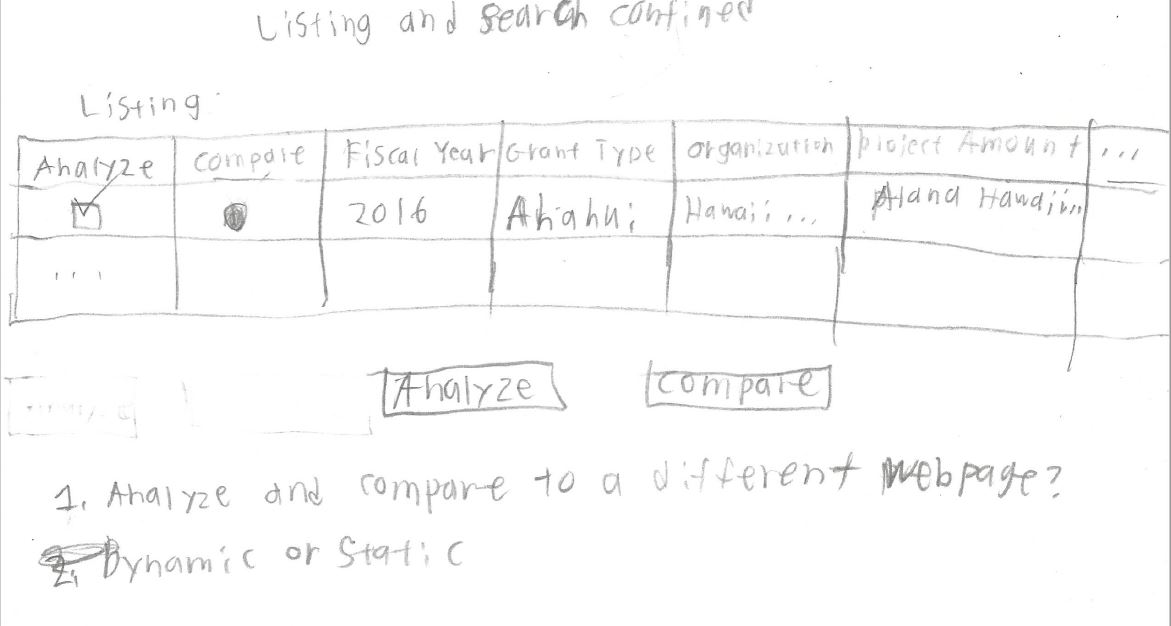 Listing and search confined
Listing
Analyze compare Fiscal Year Grant Type organization project Amount ...
2016 Ahahui Hawaii ... Aland Hawaii...
...
Analyze compare
1. Analyze and compare to a different webpage?
2. Dynamic or Static